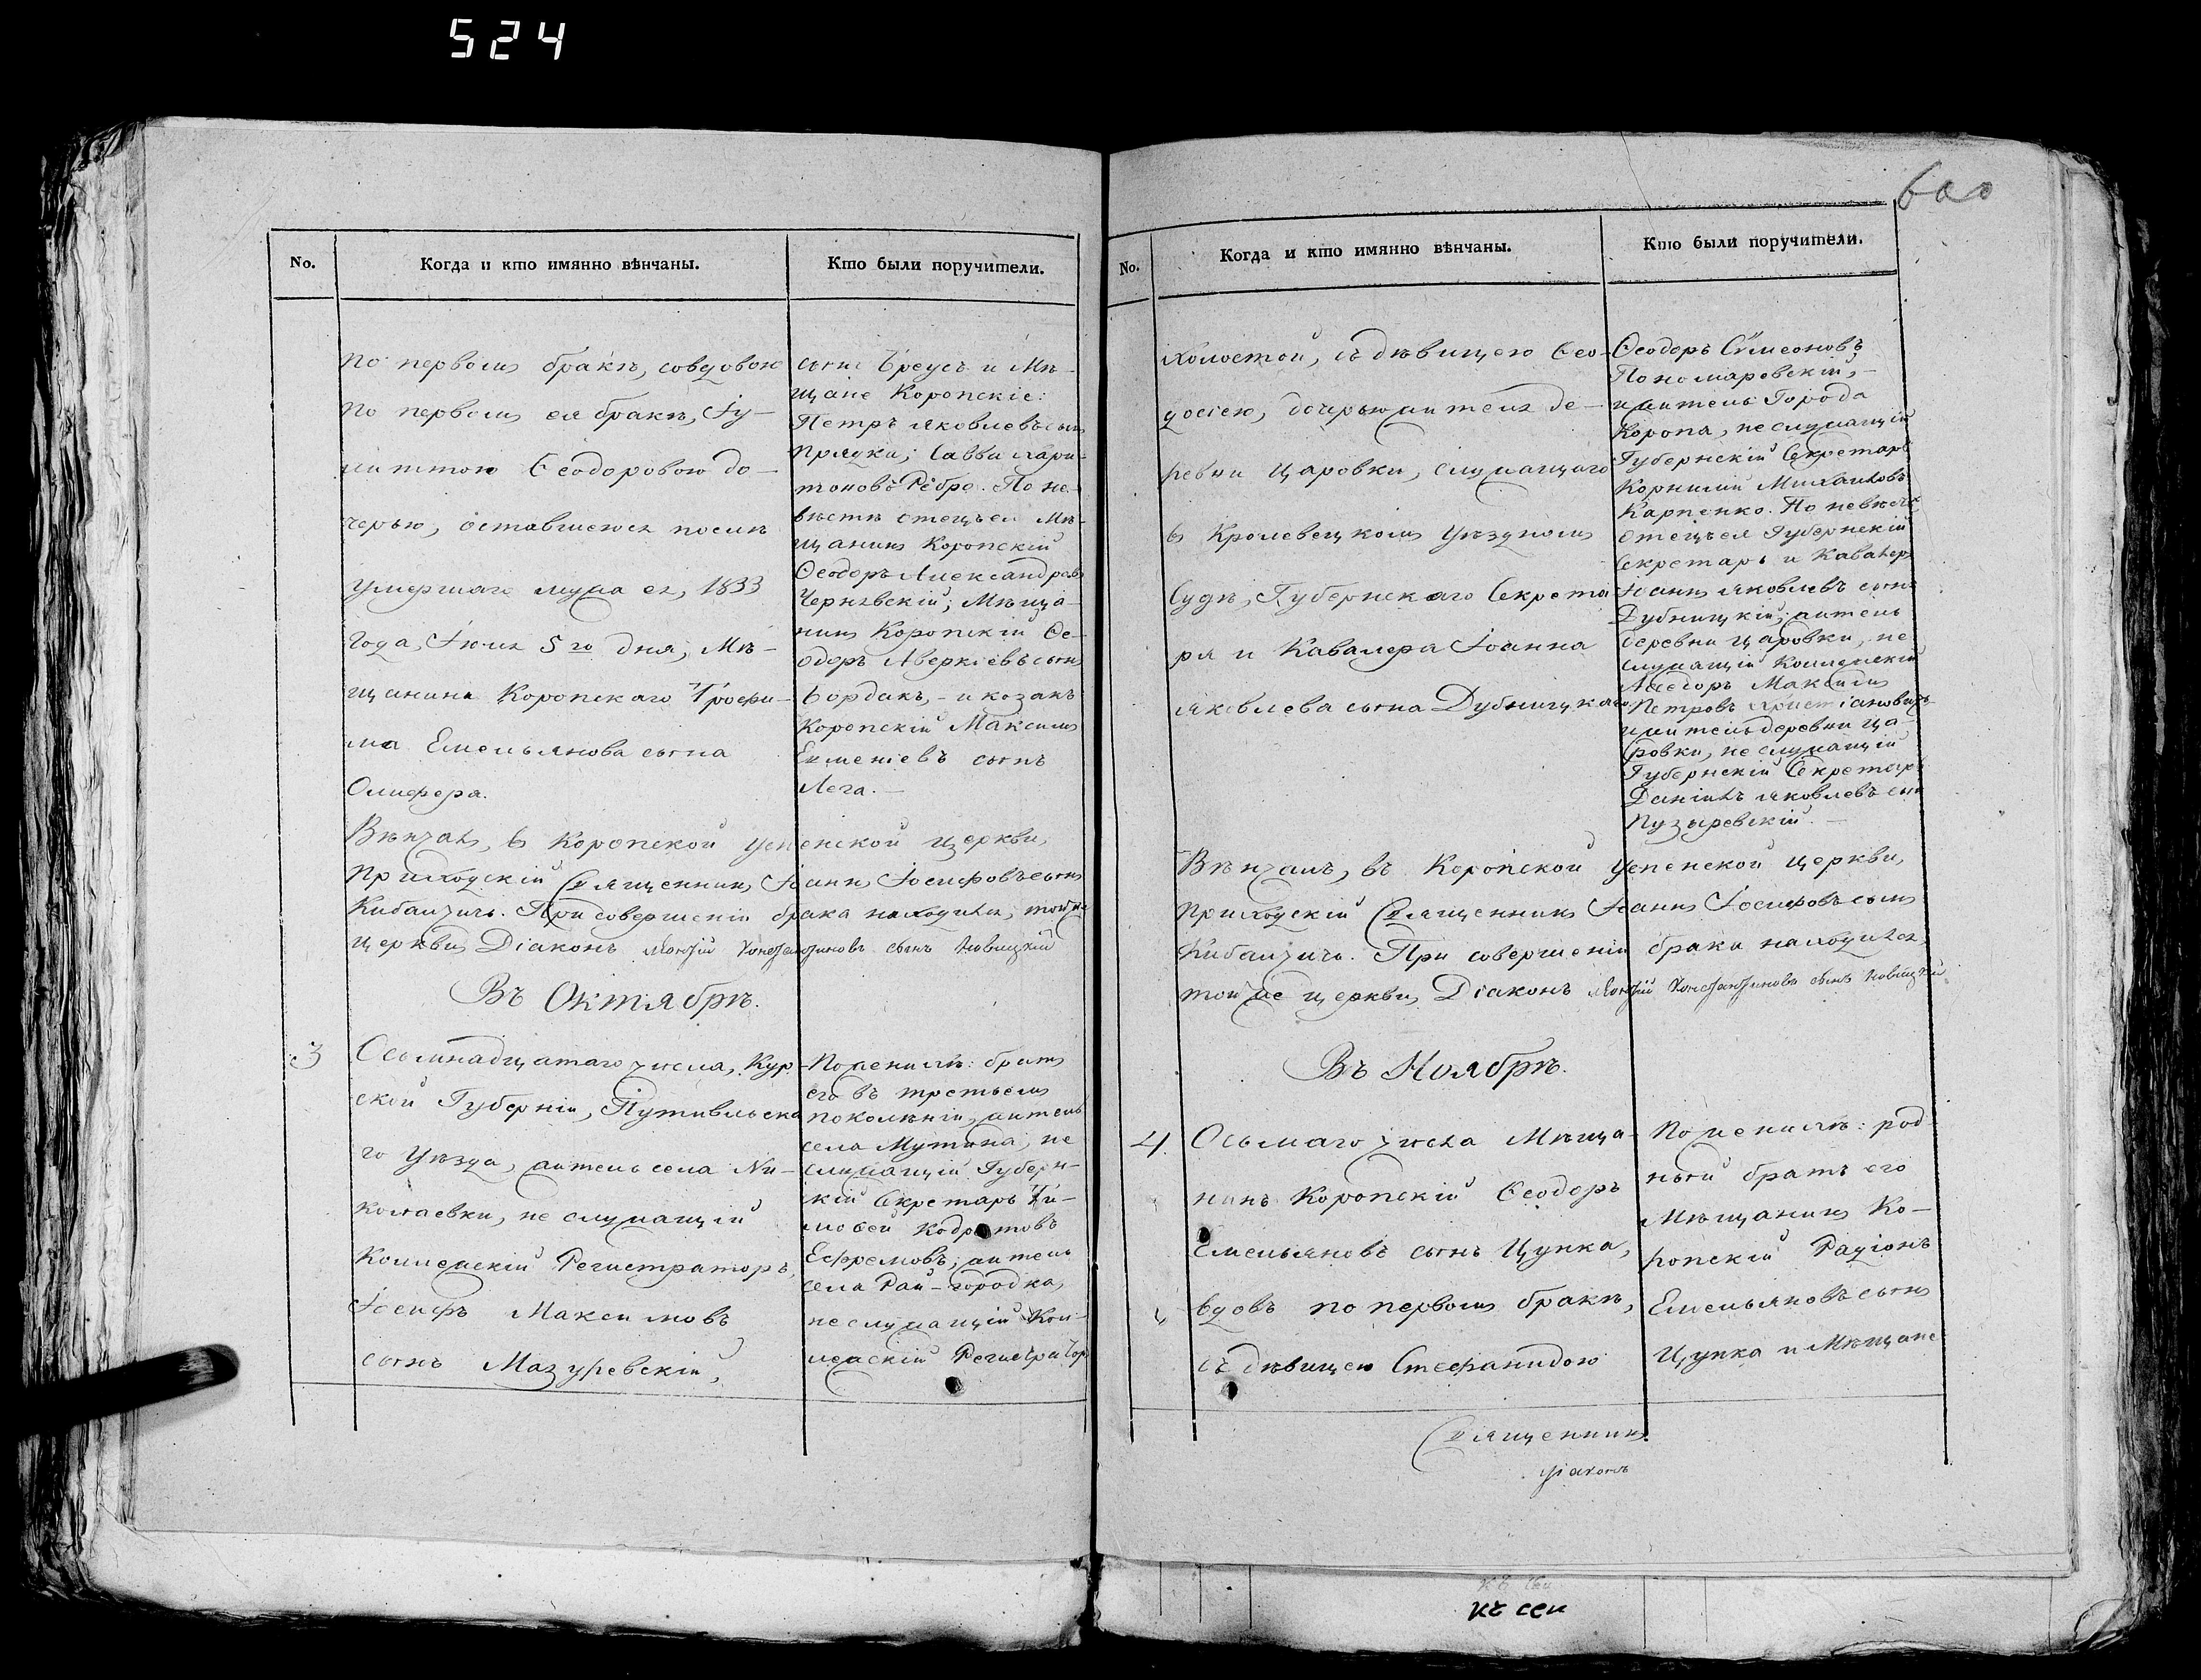 524
600
No.
Когда и кто имянно вѣнчаны.
Кто были поручители.
по первомъ бракѣ, совдовою
по первомъ ея бракѣ, Іу-
литтою Ѳеодоровою до-
черью, оставшеюся послѣ
умершаго мужа ея, 1833
года, Іюля 5го дня, Мѣ-
щанина Коропскаго Трофи-
ма Емельянова сына
Олифера.
сынъ Бреусъ и Мѣ-
щане Коропскіе:
Петръ Яковлевъ сынъ
Прядка; Савва Хари-
тоновъ Ребре. По не-
вѣстѣ отецъ ея Мѣ-
щанинъ Коропскій
Ѳеодоръ Александровъ
Чернявскій; Мѣща-
нинъ Коропскій Ѳе-
одоръ Аверкіевъ сынъ
Бордакъ, - и козакъ
Коропскій Максимъ
Евменіевъ сынъ
Лега. -
Вѣнчалъ, въ Коропской Успенской церкви,
Приходскій Священникъ Іоаннъ Іосифовъ сынъ
Кибальчичъ. При совершеніи брака находился, той же
церкви Діаконъ Константиновъ сынъ Новицкій
Въ Октябрѣ.
3
Осьмнадцатаго числа, Кур-
ской Губерніи, Путивльска
го Уѣзда, житель села Ни-
колаевки, не служащій
Коллежскій Регистраторъ,
Іосифъ Максимовъ
сынъ Мазуревскій,
По женихѣ: братъ
его въ третьемъ
поколѣніи, житель
села Мутина, не
служащій Губерн-
скій Секретарь Ти-
моѳей Кодратовъ
Ефремовъ; житель
села Рай-городка,
не служащій Кол-
лежскій Регистраторъ
No.
Когда и кто имянно вѣнчаны.
Кто были поручители.
холостой, съ дѣвицею Ѳео-
досіею, дочерью жителя де-
ревни Царовки, служащаго
въ Кролевецкомъ Уѣздномъ
Судѣ, Губернскаго Секрета
ря и Кавалера Іоанна
Яковлева сына Дубницкаго
Ѳеодоръ Сѵмеоновъ
Пономаревскій, -
и житель Города
Коропа, не служащій
Губернскій Секретарь
Корнилій Михаиловъ
Карпенко. По невѣстѣ
отецъ ея Губернскій
Секретарь и Кавалеръ
Іоаннъ Яковлевъ сынъ
Дубницкій; житель
деревни Царовки, не
служащій Коллежскій
Ассесоръ Максимъ
Петровъ
и житель деревни Ца-
ровки, не служащій
Губернскій Секретарь
Даніилъ Яковлевъ сынъ
Пузыревскій. -
Вѣнчалъ, въ Коропской Успенской церкви,
Приходскій Священникъ Іоаннъ Іосифовъ сынъ
Кибальчичъ. При совершеніи брака находился,
той же церкви Діаконъ Константиновъ сынъ Новицкій
Въ Ноябрѣ.
4.
Осьмаго числа Мѣща-
нинъ Коропскій Ѳеодоръ
Емельяновъ сынъ Цупка,
вдовъ по первомъ бракѣ,
съ дѣвицею Стефанидою
По женихѣ: род-
ный братъ его
Мѣщанинъ Ко-
ропскій Радіонъ
Емельяновъ сынъ
Цупка и Мѣщане
Священникъ
Діаконъ
къ сей